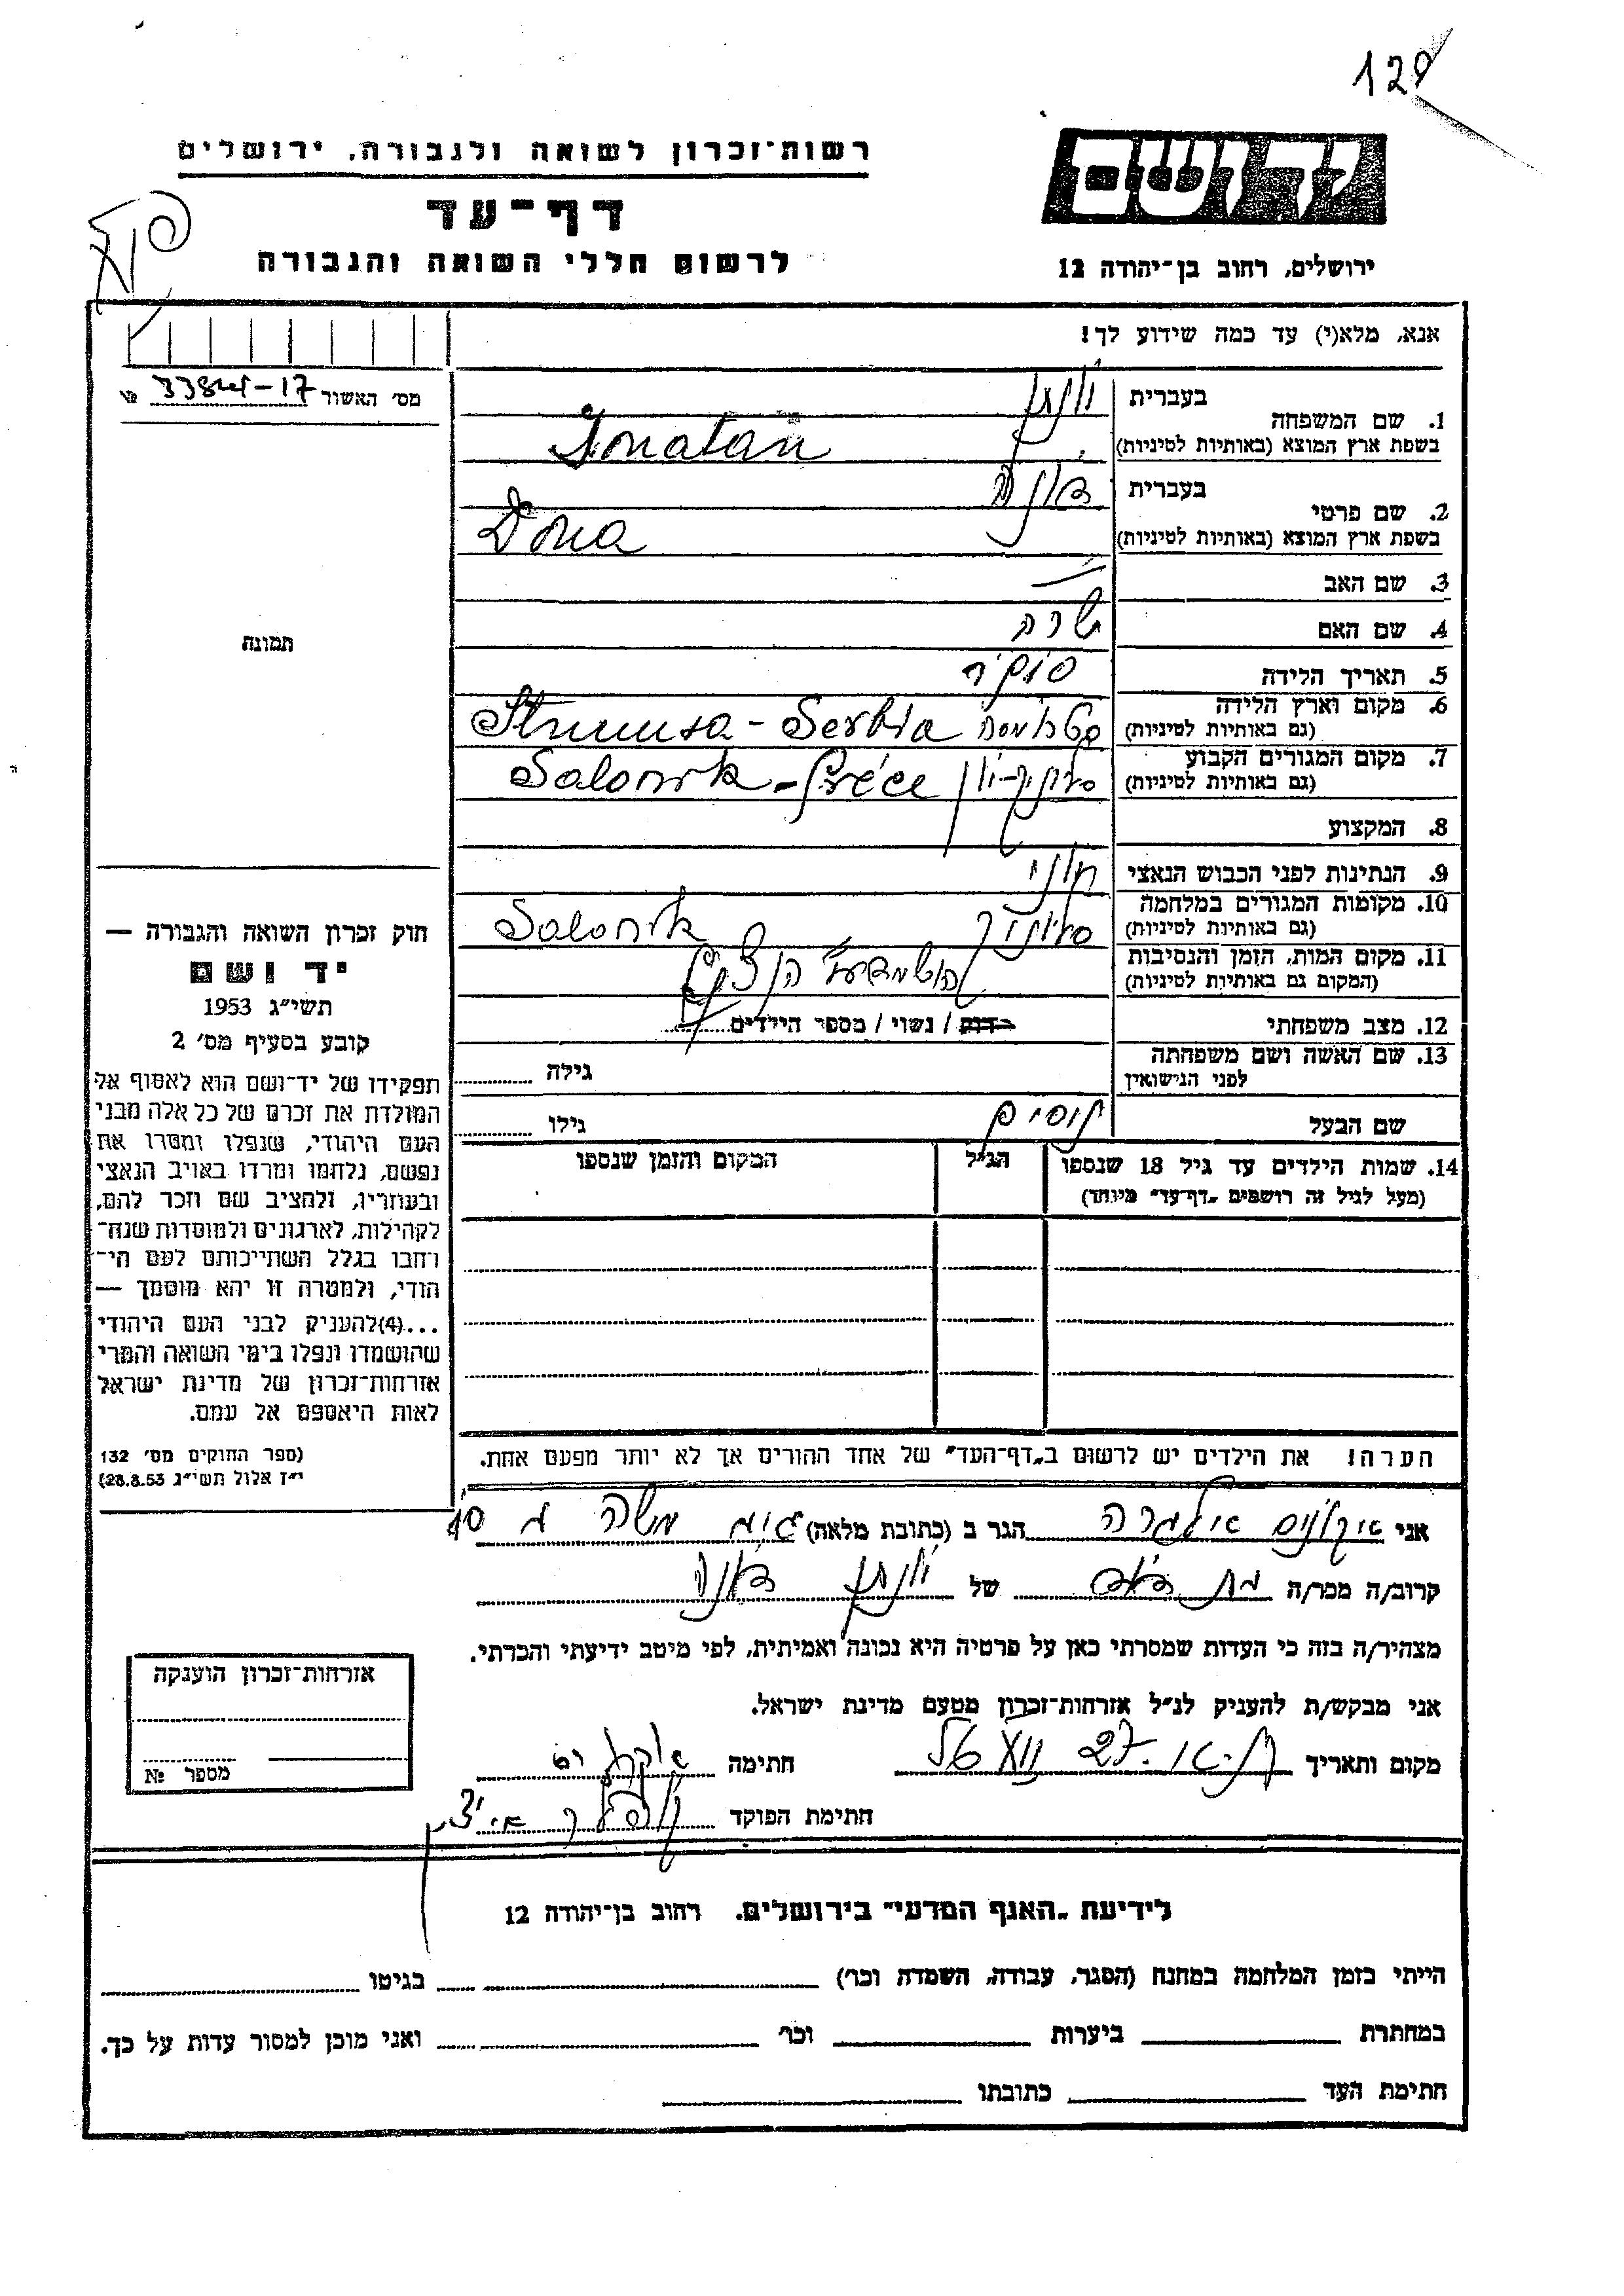 129
רשות־זכרון לשואה ולגבורה, ירושלים
דף־עד
לרשום חללי השואה והגבורה
יד ושם
ירושלים, רחוב בן־יהודה 12
אנא, מלא(י) עד כמה שידוע לך!
מס׳ האשור № 
תמונה
1. שם המשפחה בעברית יונתן
בשפת ארץ המוצא (באותיות לטיניות) Jonatan
2. שם פרטי בעברית דונה
בשפת ארץ המוצא (באותיות לטיניות) Dona
3. שם האב —
4. שם האם שרה
5. תאריך הלידה
6. מקום וארץ הלידה
(גם באותיות לטיניות) Serbia
7. מקום המגורים הקבוע
(גם באותיות לטיניות) סלוניקי-יון Salonik-Grèce
8. המקצוע
9. הנתינות לפני הכבוש הנאצי יוני
10. מקומות המגורים במלחמה
(גם באותיות לטיניות) Salonik
11. מקום המות, הזמן והנסיבות
(המקום גם באותיות לטיניות)
12. מצב משפחתי רווק / נשוי / מספר הילדים
13. שם האשה ושם משפחתה
לפני הנישואין גילה
שם הבעל נוסים גילו
14. שמות הילדים עד גיל 18 שנספו הגיל המקום והזמן שנספו
(מעל לגיל זה רושמים „דף־עד” מיוחד)
הערה! את הילדים יש לרשום ב„דף־העד” של אחד ההורים אך לא יותר מפעם אחת.
חוק זכרון השואה והגבורה —
יד ושם
תשי״ג 1953
קובע בסעיף מס׳ 2
תפקידו של יד־ושם הוא לאסוף אל
המולדת את זכרם של כל אלה מבני
העם היהודי, שנפלו ומסרו את
נפשם, נלחמו ומרדו באויב הנאצי
ובעוזריו, ולהציב שם וזכר להם,
לקהילות, לארגונים ולמוסדות שנח־
רבו בגלל השתייכותם לעם הי־
הודי, ולמטרה זו יהא מוסמך —
...(4)להעניק לבני העם היהודי
שהושמדו ונפלו בימי השואה והמרי
אזרחות־זכרון של מדינת ישראל
לאות היאספם אל עמם.
(ספר החוקים מס׳ 132
י״ז אלול תשי״ג 28.8.53)
אני הגר ב (כתובת מלאה)
קרוב/ה מכר/ה של יונתן דונה
מצהיר/ה בזה כי העדות שמסרתי כאן על פרטיה היא נכונה ואמיתית, לפי מיטב ידיעתי והכרתי.
אני מבקש/ת להעניק לנ״ל אזרחות־זכרון מטעם מדינת ישראל.
מקום ותאריך חתימה
חתימת הפוקד
אזרחות־זכרון הוענקה
מספר №
לידיעת „האגף המדעי” בירושלים, רחוב בן־יהודה 12
הייתי בזמן המלחמה במחנה (הסגר, עבודה, השמדה וכר׳) בגיטו
במחתרת ביערות וכר׳ ואני מוכן למסור עדות על כך.
חתימת העד כתובתו